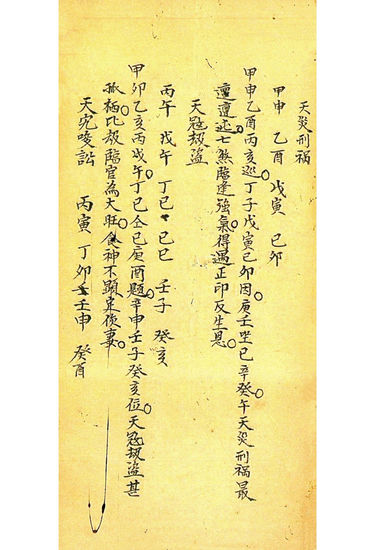 天災刑禍
甲申 乙酉 戊寅 己卯
甲申乙酉丙亥巡丁子戊寅己卯因庚壬坐巳辛癸午天災刑禍最
邅邅迍七煞臨逢強氣得遇正印反生恩
天冦劫盜
丙午 戊午 丁巳 己巳 壬子 癸亥
甲卯乙亥丙戌午丁巳 己庚酉題辛申壬子癸亥位天冦劫盜甚
孤栖比劫臨官為大旺食神不顯定傷妻
天宄唆訟 丙寅 丁卯 壬申 癸酉